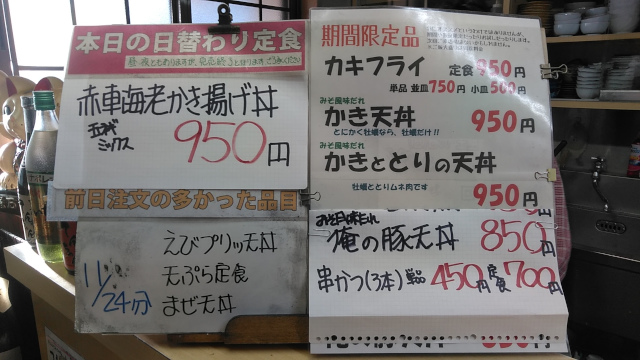 本日の日替わり定食
赤車海老かき揚げ丼
玉ネギ
ミックス
950円
前日注文の多かった品目
11/24分
えびプリッ天丼
天ぷら定食
まぜ天丼
期間限定品
カキフライ 定食 950円
単品 並皿 750円 小皿 500円
みそ風味だれ
かき天丼 950円
とにかく牡蠣なら、牡蠣だけ!!
みそ風味だれ
かきととりの天丼
牡蠣ととりムネ肉です
950円
みそ風味だれ
俺の豚天丼 850円
串かつ(3本) 単品 450円 定食 700円